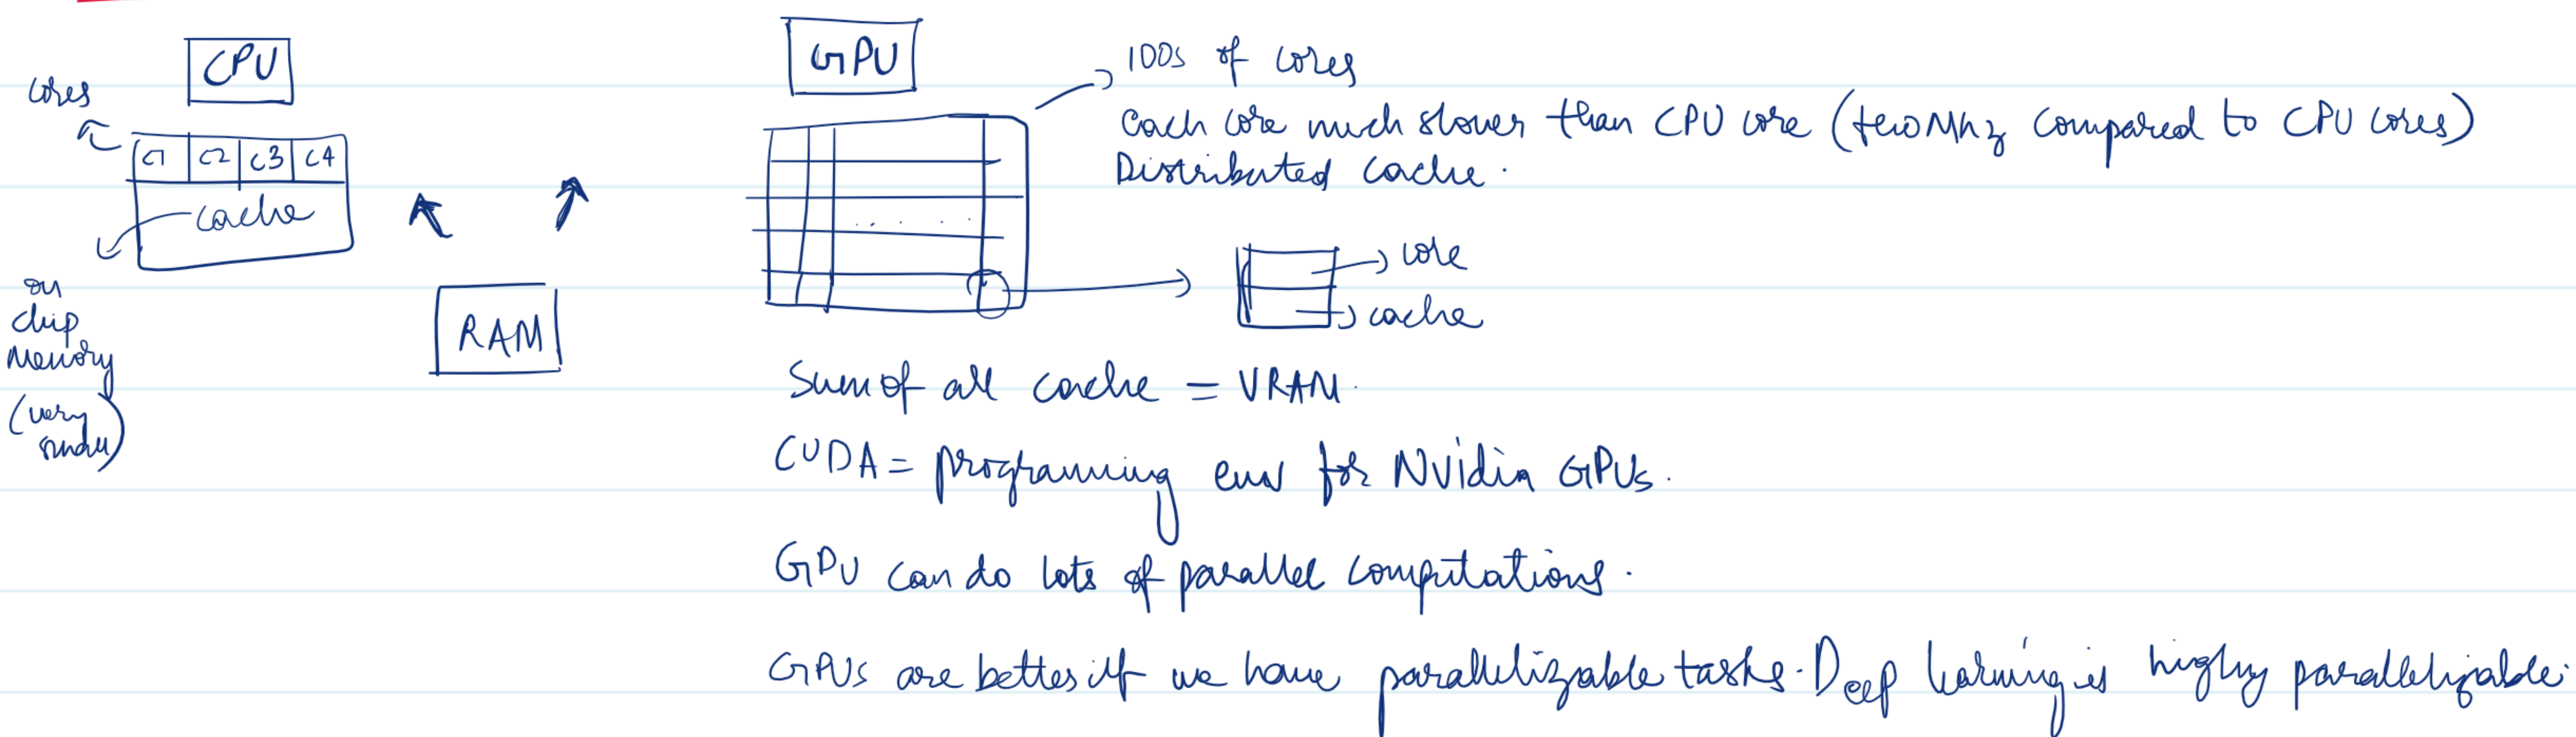 CPU
cores
C1 C2 C3 C4
cache
on
chip
memory
(very
small)
RAM
GPU
100s of cores
Each core much slower than CPU core (few Mhz compared to CPU cores)
Distributed cache.
core
cache
Sum of all cache = VRAM.
CUDA = programming env for Nvidia GPUs.
GPU can do lots of parallel computations.
GPUs are better if we have parallelizable tasks. Deep learning is highly parallelizable.